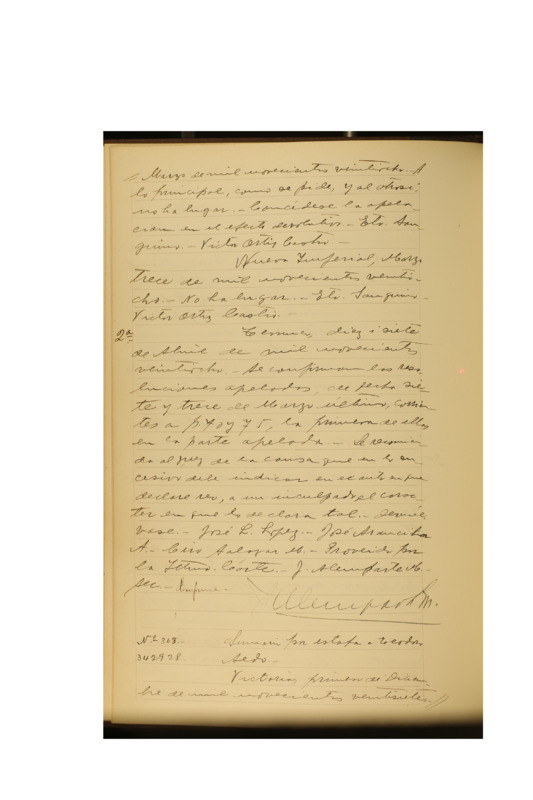 // Marzo de mil novecientos veintiocho.- A
lo principal, como se pide, y al otrosí
no ha lugar.- Concédese la apela-
ción en el efecto devolutivo.- Eto. San-
güino.- Victor Ortiz Castro.-
Nueva Imperial, Marzo
trece de mil novecientos veintio-
cho.- No ha lugar.- Eto. Sanguino.-
Victor Ortiz Castro.-
2ª Temuco, diez i siete
de Abril de mil novecientos
veintiocho.- Se confirman las reso-
luciones apeladas, de fecha sie-
te y trece de Marzo último, corrien-
tes a f. 40 y 75, la primera de ellas
en la parte apelada.- Se recomien-
da al juez de la causa que en lo su-
cesivo debe indicar en el auto en que
declare reo, a un inculpado, el carác-
ter en que lo declara tal.- Devuél-
vase.- José L. Lopez.- José Arancibia
A.- Ciro Salazar M.- Proveido por
la Iltma. Corte.- J. Alemparte M.-
sec.- Conforme.-
Alemparte M.
Nº 368. Sumario por estafa a Teodor
342928. Aedo.-
Victoria, primero de Diciem-
bre de mil novecientos veintisiete.//